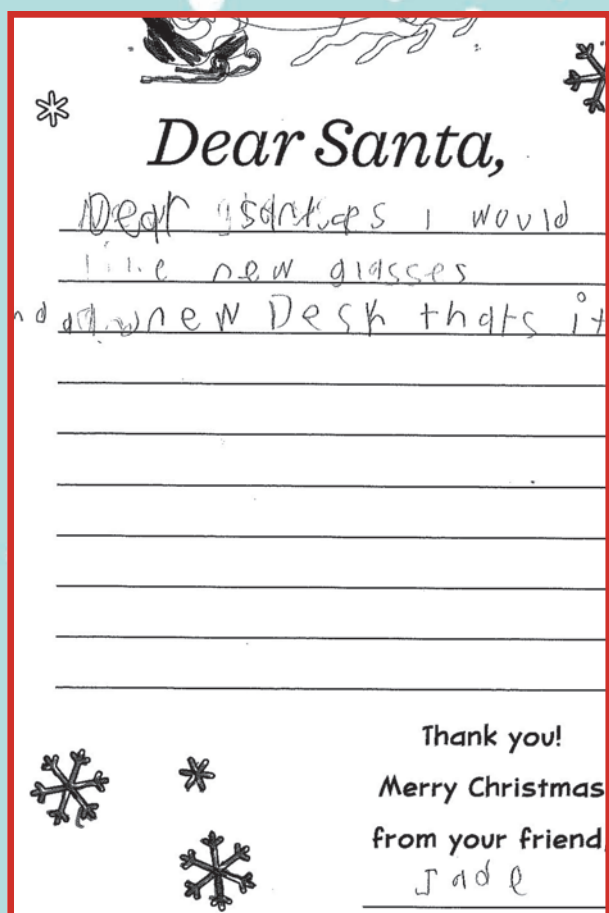 Dear Santa,
Dear santaps I would
like new glasses
nd a new Desk thats it
Thank you!
Merry Christmas
from your friend,
Jade